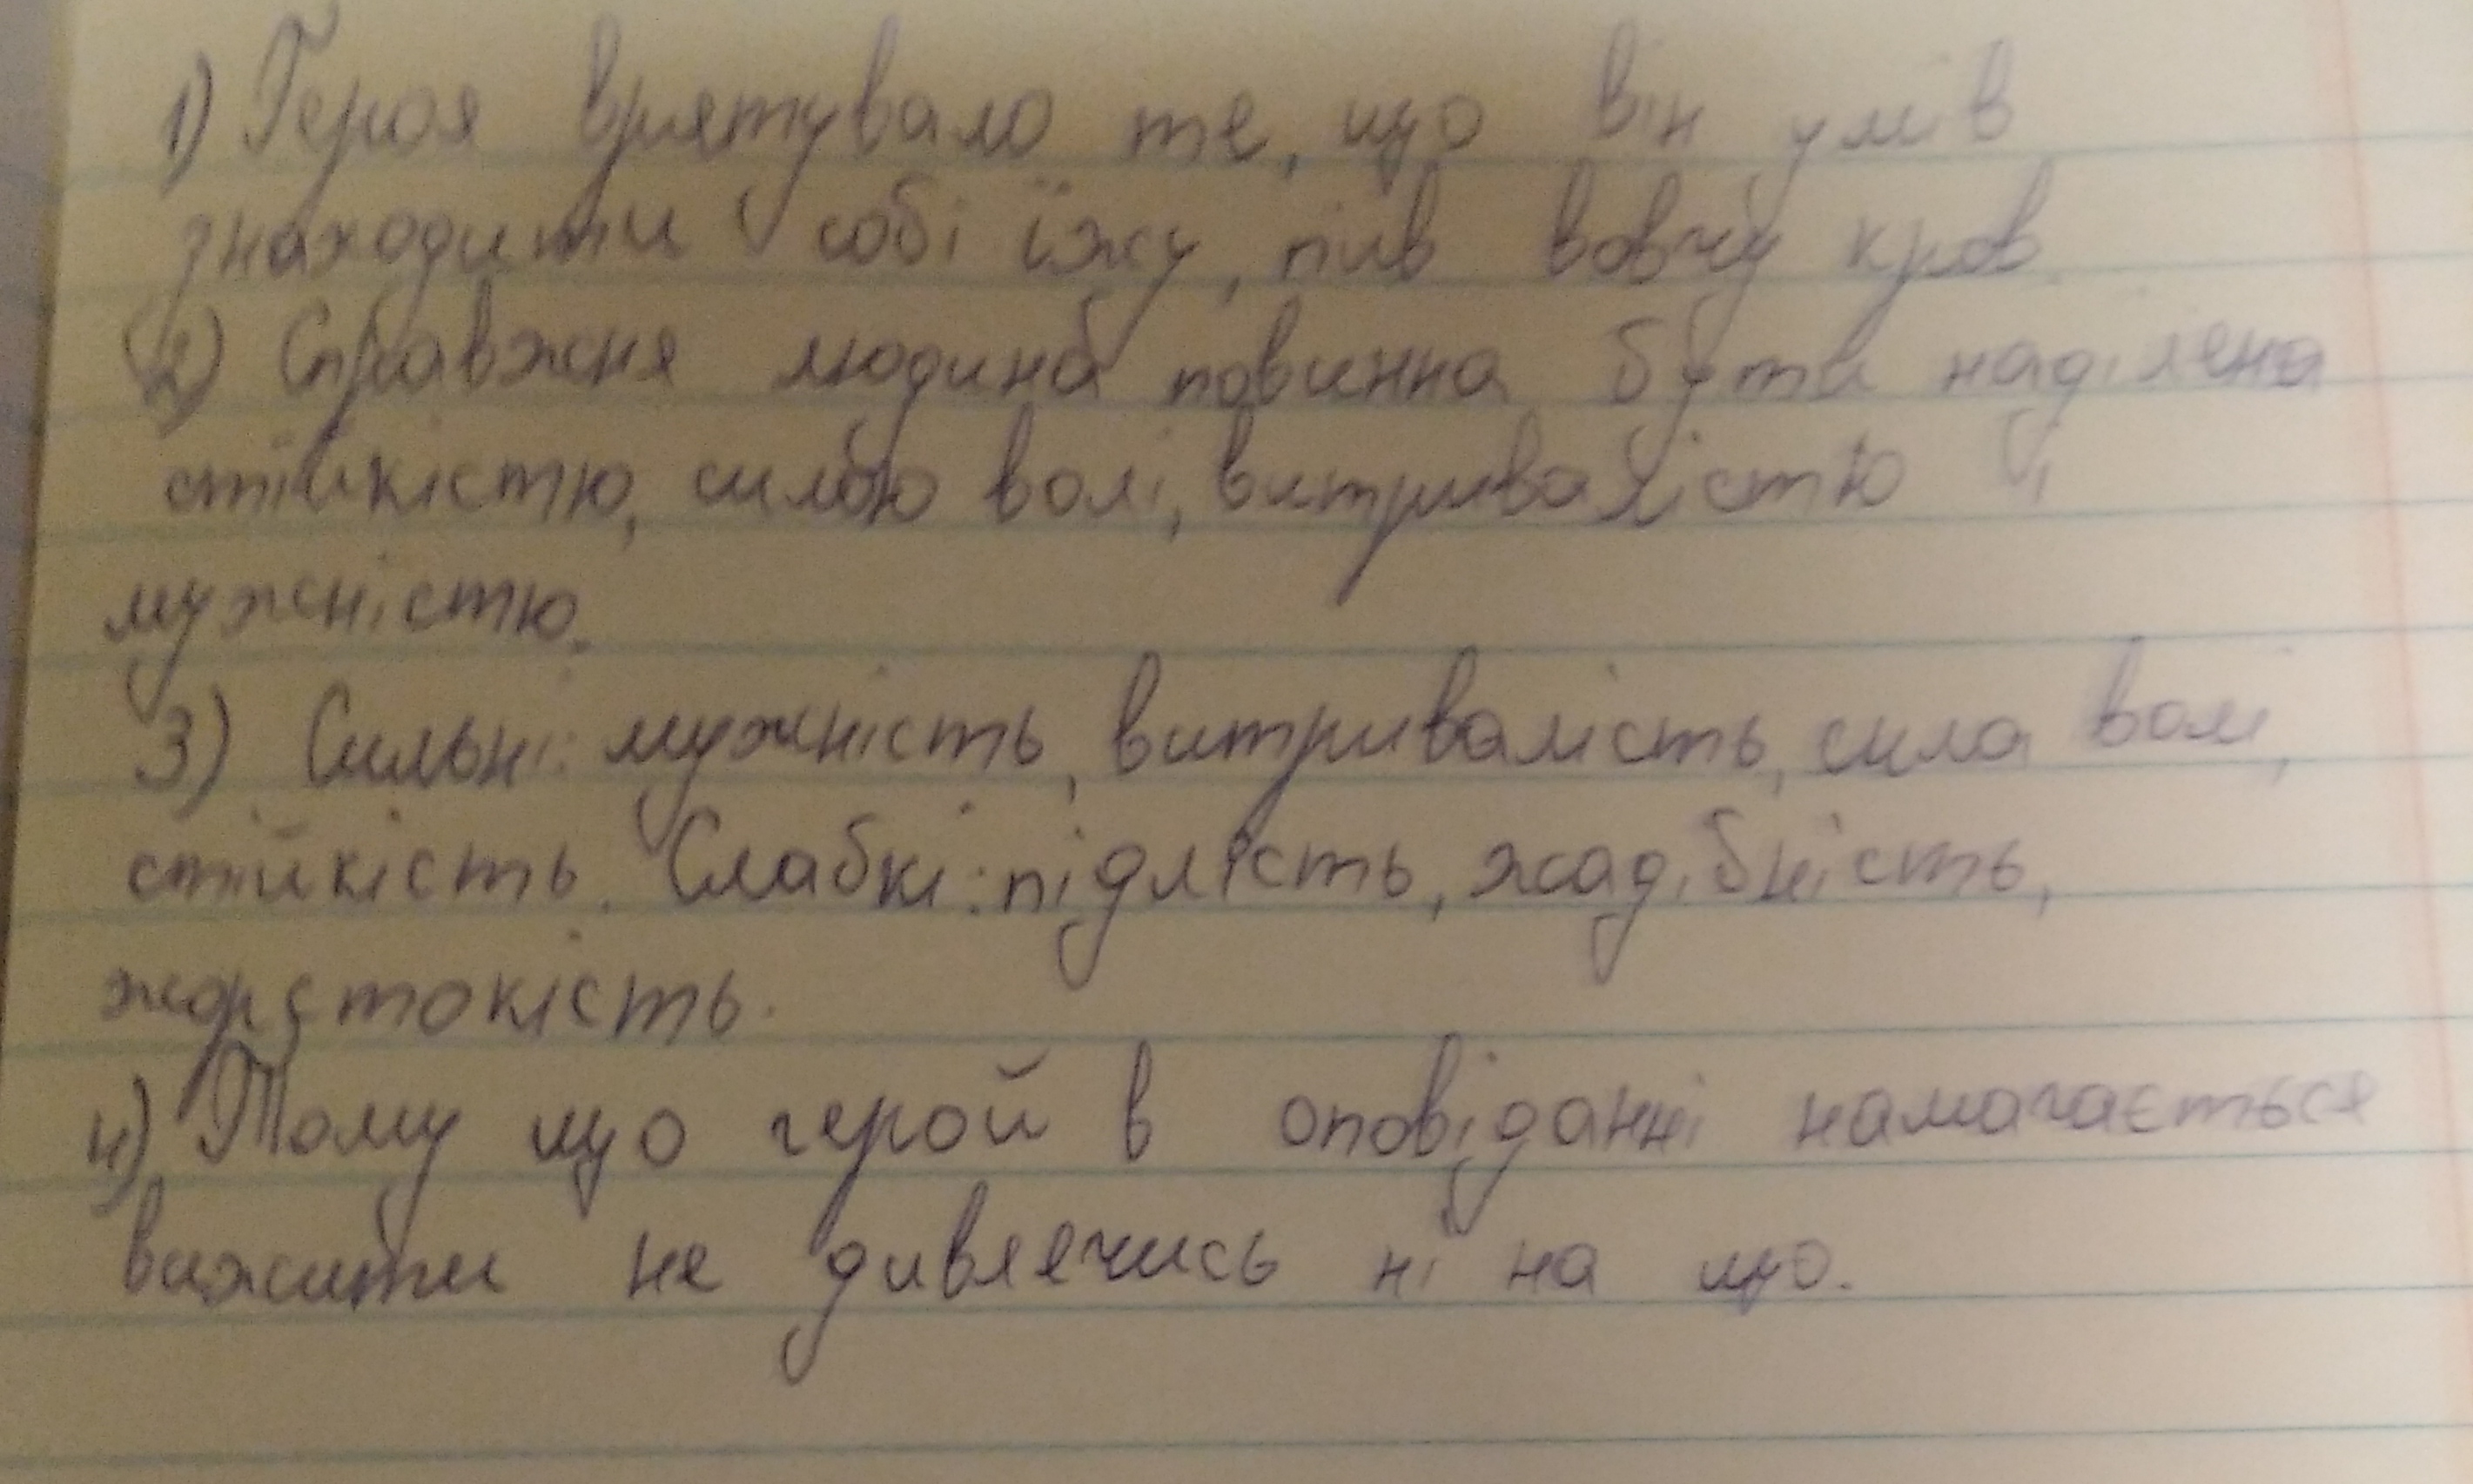 1) Героя врятувало те, що він умів
знаходити собі їжу, пив вовчу кров.
2) Справжня людина повинна бути наділена
стійкістю, силою волі, витривалістю і
мужністю.
3) Сильні: мужність, витривалість, сила волі,
стійкість. Слабкі: підлість, жадібність,
жорстокість.
4) Тому що герой в оповіданні намагається
вижити не дивлячись ні на що.